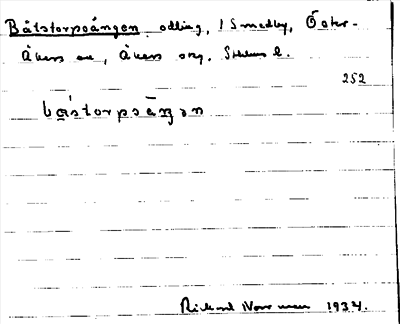 Båtstorpsängen, odling, 1 Smedby, Öster-
Åkers sn, Åkers srg. Sthlms l.
252
båstorpsäŋən
Rickard 1937.